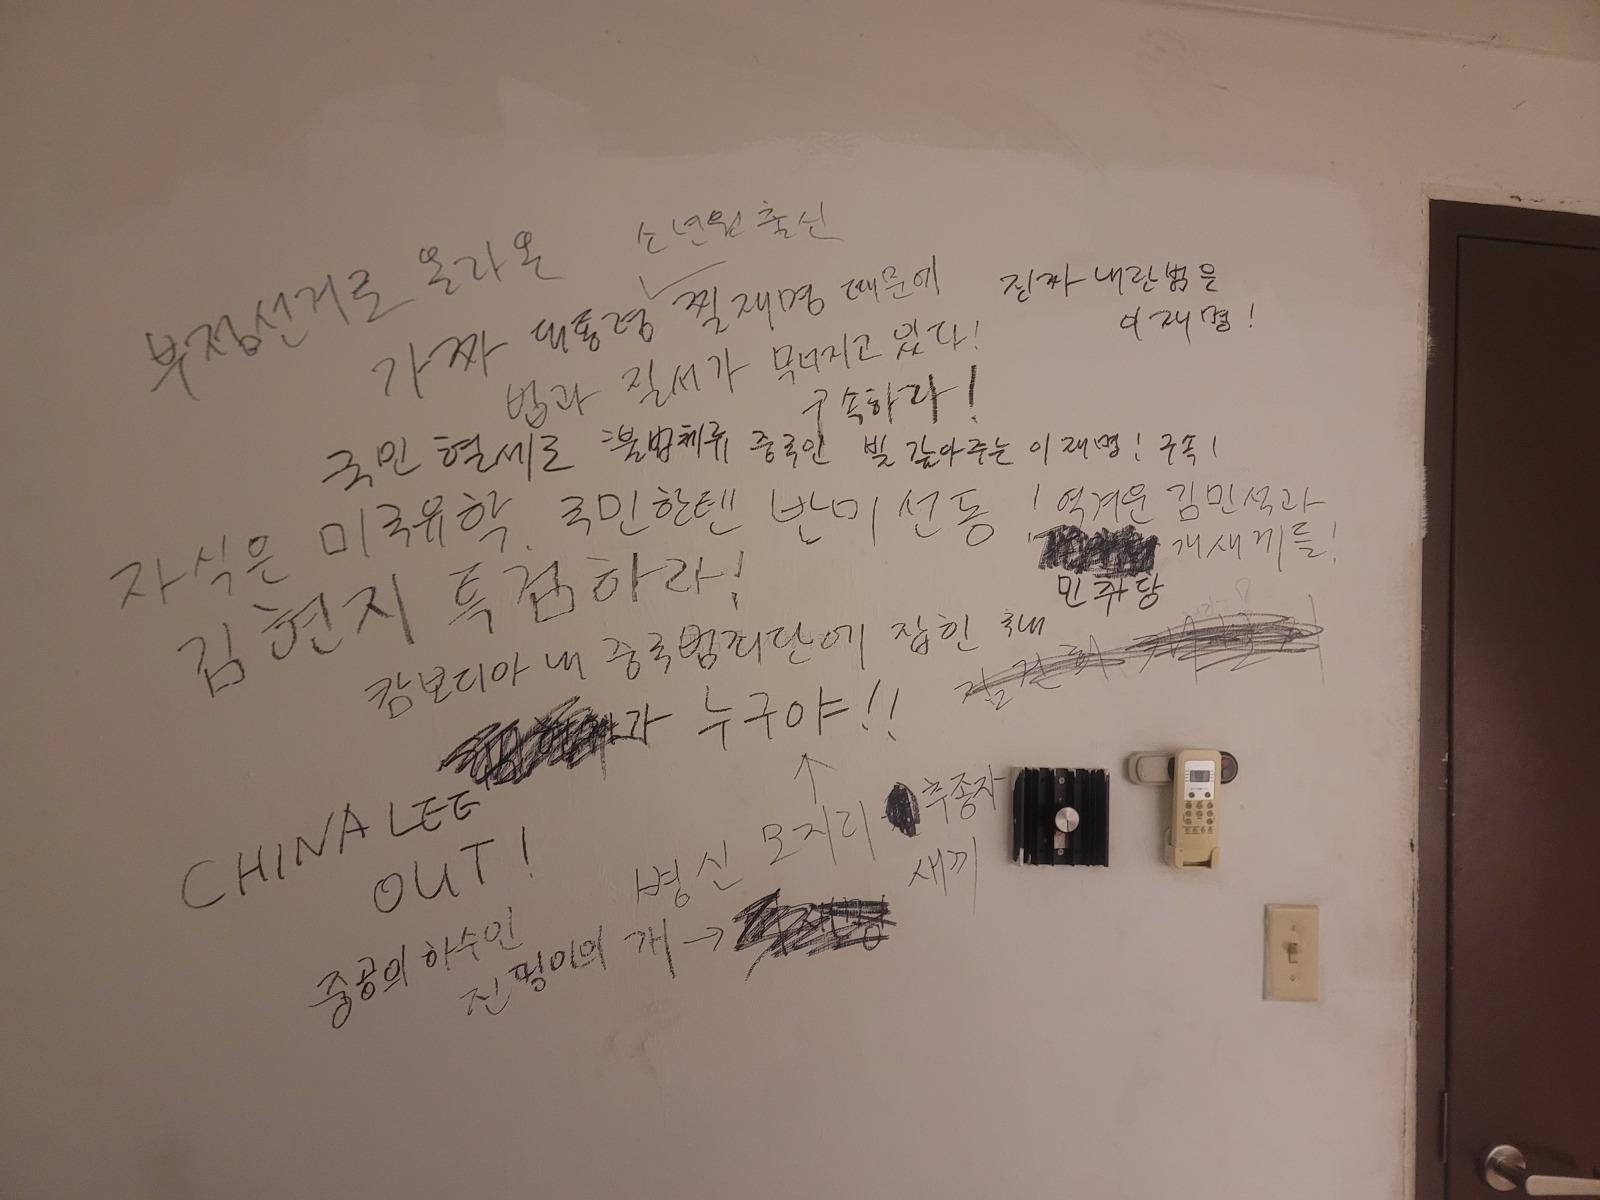 부정선거로 올라온
소년원 출신
가짜 대통령 찔재명 때문에
법과 질서가 무너지고 있다!
진짜 내란범은
이재명!
구속하라!
국민 혈세로 불법체류 중국인 빚 갚아주는 이재명! 구속!
자식은 미국유학. 국민한텐 반미 선동! 역겨운 김민석과
개새끼들!
민쥐당
김현지 특검하라!
캄보디아 내 중국범죄단에 잡힌 애
가 누구야!!
CHINA LEE
OUT!
병신 모지리 추종자
새끼
중공의 하수인
진핑이의 개 →